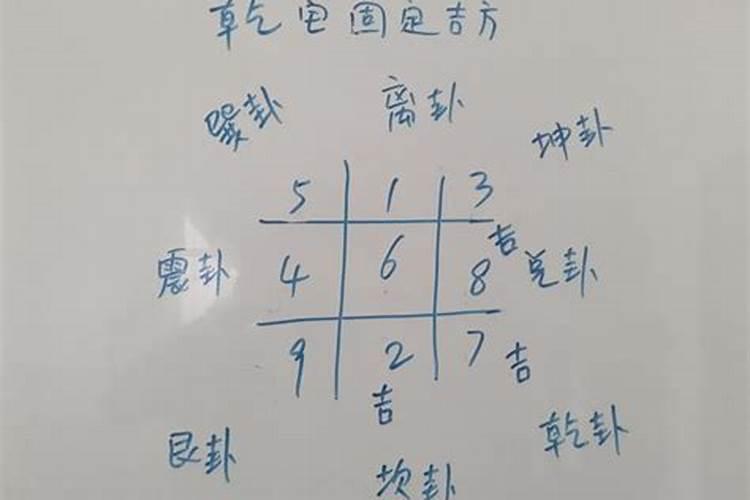 乾宅固定吉方
巽卦 离卦 坤卦
5 1 3
吉
震卦 4 6 8 兑卦
9 2 7 吉
吉
艮卦 坎卦 乾卦